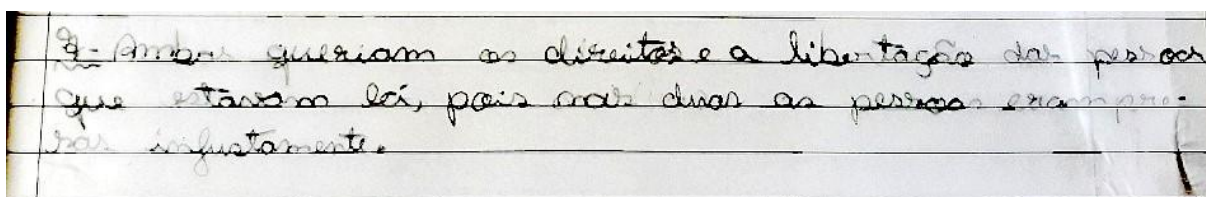 2- Ambas queriam os direitos e a libertação das pessoas
que estavam lá, pois nas duas as pessoas eram pre-
sas injustamente.